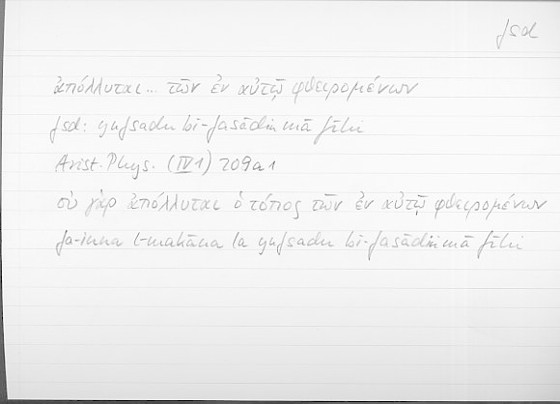 fsd
ἀπόλλυται... τῶν ἐν αὐτῷ φθειρομένων
fsd: yufsadu bi-fasādi mā fīhi
Arist. Phys. (IV 1) 209a1
οὐ γὰρ ἀπόλλυται ὁ τόπος τῶν ἐν αὐτῷ φθειρομένων
fa-inna l-makāna la yufsadu bi-fasādi mā fīhi